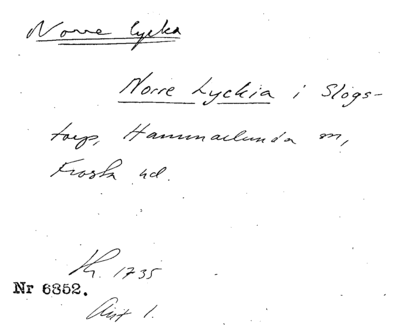 Norre lycka
Norre Lyckia i Slögs-
torp, Hammarlunda sn,
Frosta hd.
Lh. 1735
Nr 6852.
Avst 1.